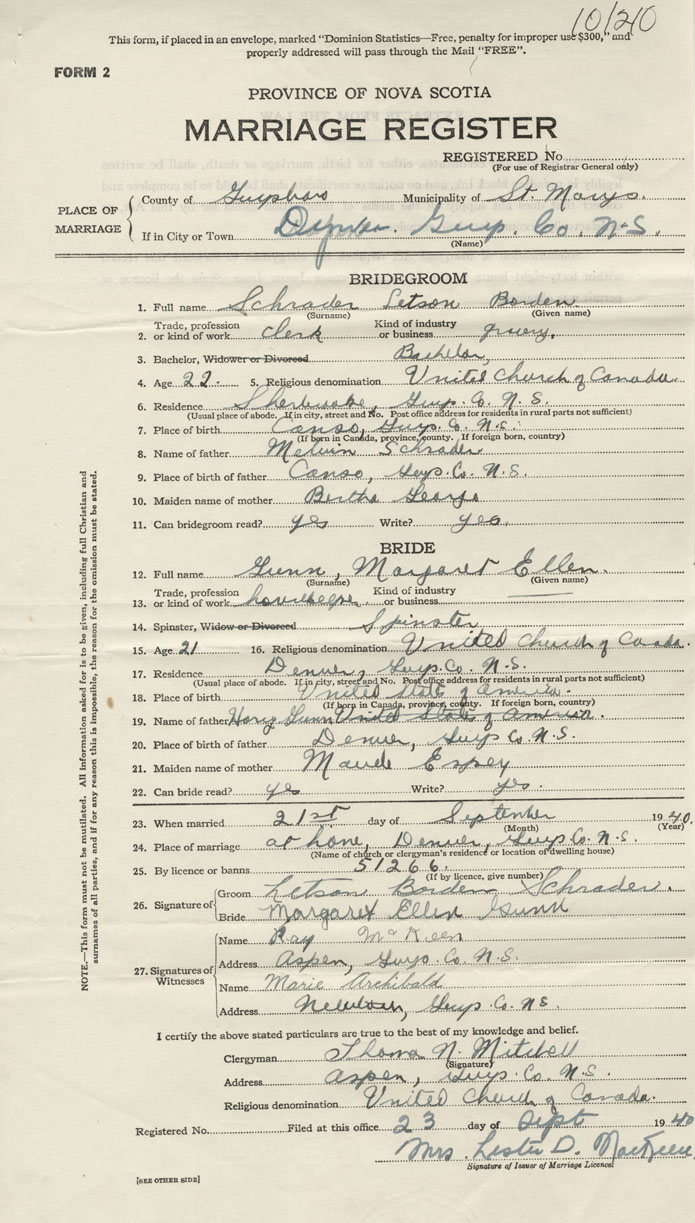 10/20
This form, if placed in an envelope, marked "Dominion Statistics—Free, penalty for improper use $300," and
properly addressed will pass through the Mail "FREE".
FORM 2
PROVINCE OF NOVA SCOTIA
MARRIAGE REGISTER
REGISTERED No.
(For use of Registrar General only)
PLACE OF MARRIAGE
County of Guysboro Municipality of St. Marys.
If in City or Town Denver. Guys. Co. N-S.
(Name)
BRIDEGROOM
1. Full name Schrader Letson Borden
(Surname) (Given name)
Trade, profession Kind of industry
2. or kind of work clerk or business grocery.
3. Bachelor, Widower or Divorced Bachelor,
4. Age 22. 5. Religious denomination United Church of Canada.
6. Residence Sherbrooke, Guys. Co. N. S.
(Usual place of abode. If in city, street and No. Post office address for residents in rural parts not sufficient)
7. Place of birth Canso, Guys. Co. N.S.
(If born in Canada, province, county. If foreign born, country)
8. Name of father Melvin Schrader
9. Place of birth of father Canso, Guys. Co. N. S.
10. Maiden name of mother Bertha George
11. Can bridegroom read? yes Write? yes.
BRIDE
12. Full name Gunn, Margaret Ellen.
(Surname) (Given name)
Trade, profession Kind of industry
13. or kind of work housekeeper or business
14. Spinster, Widow or Divorced Spinster
15. Age 21 16. Religious denomination United Church of Canada.
17. Residence Denver, Guys. Co. N. S.
(Usual place of abode. If in city, street and No. Post office address for residents in rural parts not sufficient)
18. Place of birth United State of America.
(If born in Canada, province, county. If foreign born, country)
19. Name of father Gunn United State of America.
20. Place of birth of father Denver, Guys Co. N. S.
21. Maiden name of mother Maude Espey
22. Can bride read? yes Write? yes.
23. When married 21st day of September 1940.
(Month) (Year)
24. Place of marriage at home, Denver, Guys Co. N. S.
(Name of church or clergyman's residence or location of dwelling house)
25. By licence or banns 51266.
(If by licence, give number)
26. Signature of
Groom Letson Borden Schrader.
Bride Margaret Ellen Gunn
27. Signatures of Witnesses
Name Ray McKeen
Address Aspen, Guys. Co. N.S.
Name Marie Archibald
Address Newtown, Guys. Co. N.S.
I certify the above stated particulars are true to the best of my knowledge and belief.
Clergyman Thomas N. Mitchell
(Signature)
Address Aspen, Guys. Co. N. S.
Religious denomination United Church of Canada.
Registered No. Filed at this office 23 day of Sept 1940
Mrs. Lester D. MacKeen
Signature of Issuer of Marriage Licence
[SEE OTHER SIDE]
NOTE.—This form must not be mutilated. All information asked for is to be given, including full Christian and
surnames of all parties, and if for any reason this is impossible, the reason for the omission must be stated.